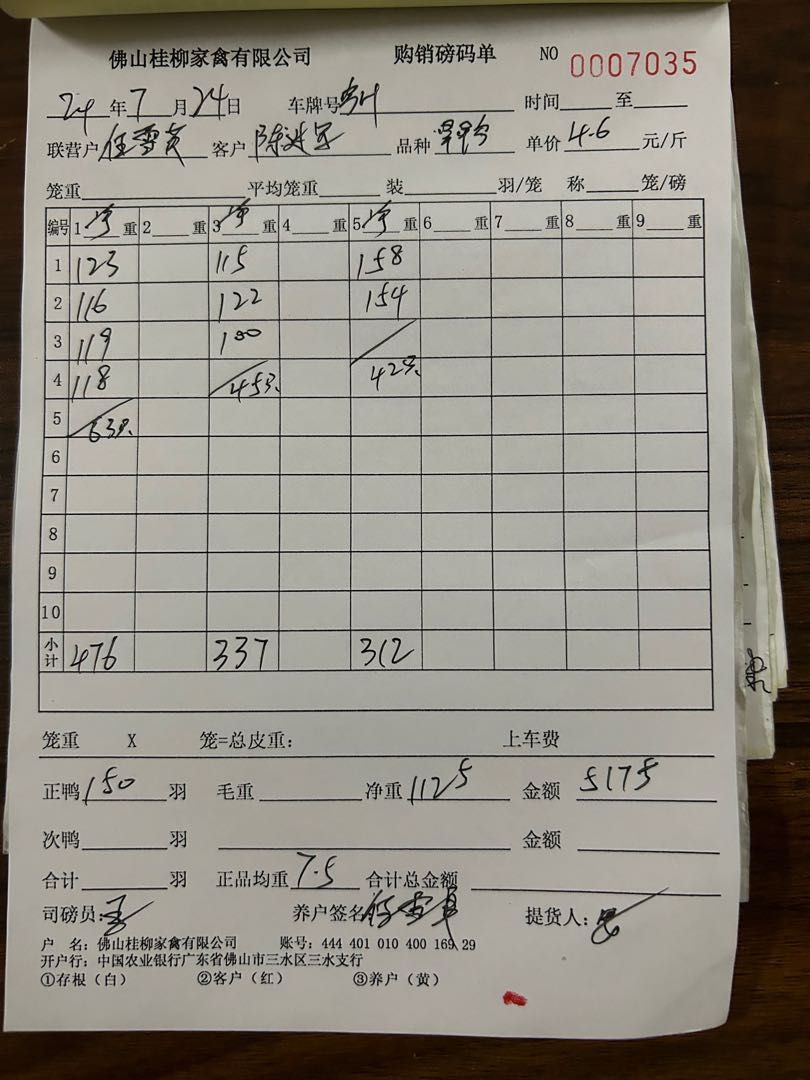 佛山桂柳家禽有限公司 购销磅码单 NO 0007035
24年7月24日 车牌号 时间 至
联营户 任雪英 客户 陈 品种 单价 4.6 元/斤
笼重 平均笼重 装 羽/笼 称 笼/磅
编号 1 净 重 2 重 3 净 重 4 重 5 净 重 6 重 7 重 8 重 9 重
1 123 115 158
2 116 122 154
3 119 100
4 118 45只 42只
5 63只
6
7
8
9
10
小计 476 337 312
笼重 X 笼=总皮重: 上车费
正鸭 150 羽 毛重 净重 1125 金额 5175
次鸭 羽 金额
合计 羽 正品均重 7.5 合计总金额
司磅员: 养户签名 提货人:
户 名: 佛山桂柳家禽有限公司 账号: 444 401 010 400 169 29
开户行: 中国农业银行广东省佛山市三水区三水支行
①存根(白) ②客户(红) ③养户(黄)